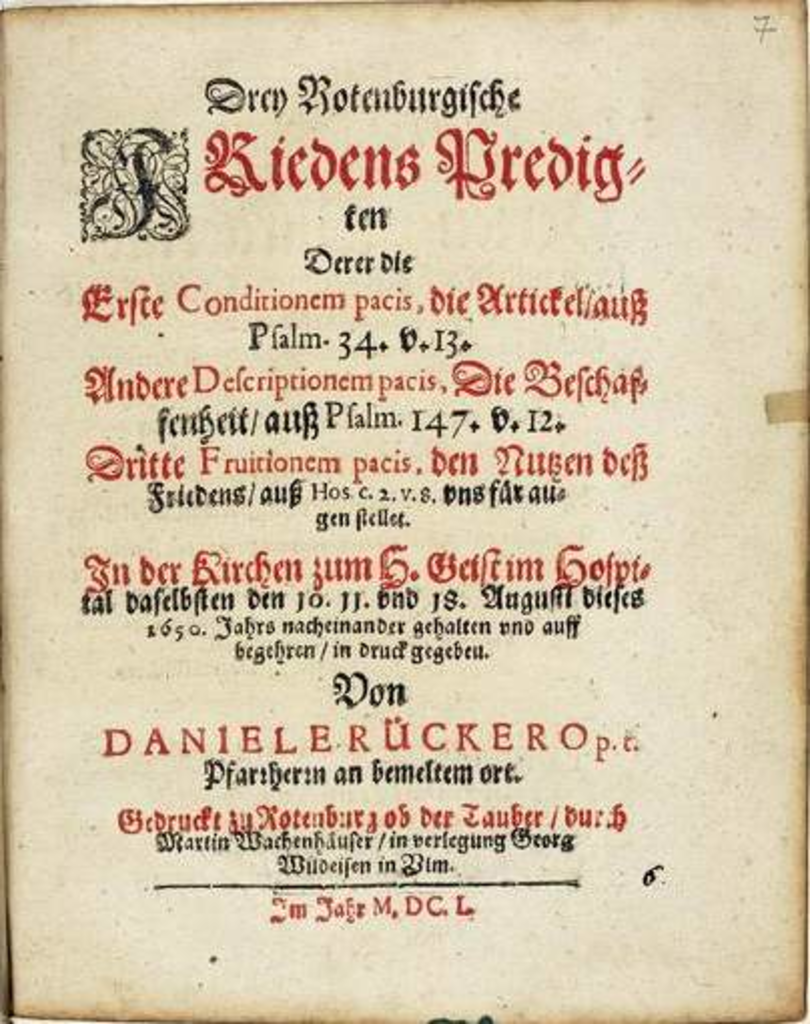 7
Drey Rotenburgische
FRiedens Predig⸗
ten
Derer die
Erste Conditionem pacis, die Artickel/auß
Psalm. 34. v. 13.
Andere Descriptionem pacis, Die Beschaf⸗
fenheit/ auß Psalm. 147. v. 12.
Dritte Fruitionem pacis, den Nutzen deß
Friedens/ auß Hos c. 2. v. 8. vns für au⸗
gen stellet.
In der Kirchen zum H. Geist im Hospi⸗
tal daselbsten den 10. 11. vnd 18. Augusti dieses
1650. Jahrs nacheinander gehalten vnd auff
begehren / in druck gegeben.
Von
DANIELE RÜCKERO p. t.
Pfarrherrn an bemeltem ort.
Gedruckt zu Rotenburg ob der Tauber / durch
Martin Wachenhäuser / in verlegung Georg
Wildeisen in Vlm.
6.
Im Jahr M. DC. L.